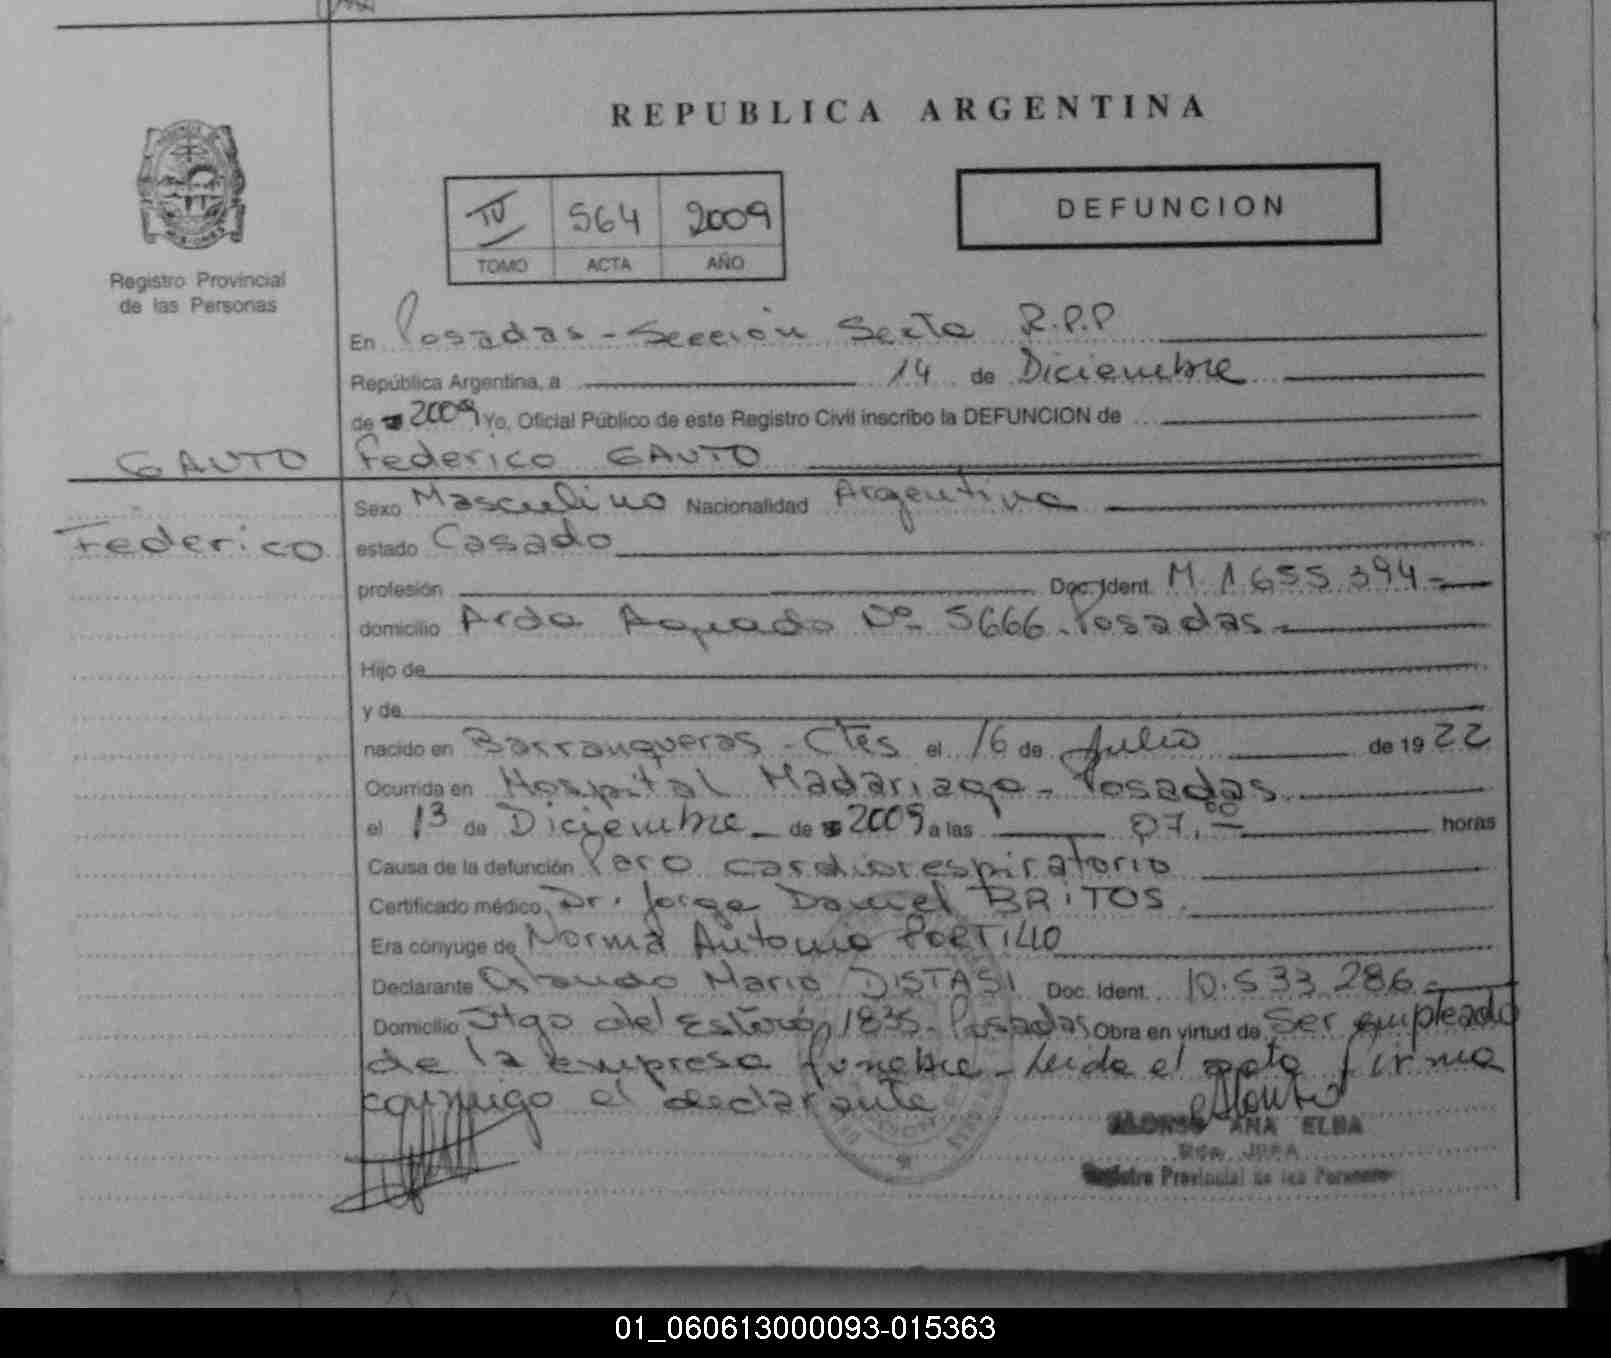 REPUBLICA ARGENTINA
DEFUNCION
IV 564 2009
TOMO ACTA AÑO
Registro Provincial
de las Personas
En Posadas - Sección Sexta R.P.P
República Argentina, a 14 de Diciembre
de 2009 Yo, Oficial Público de este Registro Civil inscribo la DEFUNCION de
GAUTO Federico GAUTO
Sexo Masculino Nacionalidad Argentina
Federico estado Casado
profesión Doc. Ident. M. 1.655.394.-
domicilio Arda Aguado Nº 5666 - Posadas.-
Hijo de
y de
nacido en Barranqueras - Ctes el 16 de Julio de 1922
Ocurrida en Hospital Madariaga - Posadas.
el 13 de Diciembre de 2009 a las 07,00 horas
Causa de la defunción Paro cardiorespiratorio
Certificado médico Dr. Jorge Daniel BRiTOS.
Era cónyuge de Norma Antonia PORTILLO
Declarante Orlando Mario DISTASI Doc. Ident. 10.533.286.-
Domicilio Stgo del Estero 1835 - Posadas Obra en virtud de Ser empleado
de la empresa funebre - Leida el acta firma
conmigo el declarante
ALONSO ANA ELBA
Registro Provincial de las Personas
01_060613000093-015363